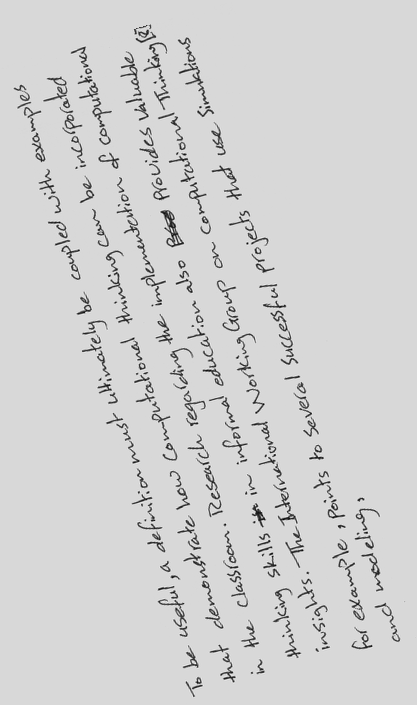 To be useful, a definition must ultimately be coupled with examples
that demonstrate how Computational thinking can be incorporated
in the classroom. Research regarding the implementation of computational
thinking skills in informal education also Provides valuable
insights. The International Working Group on computational Thinking [2]
for example, Points to several Successful projects that use Simulations
and modeling,